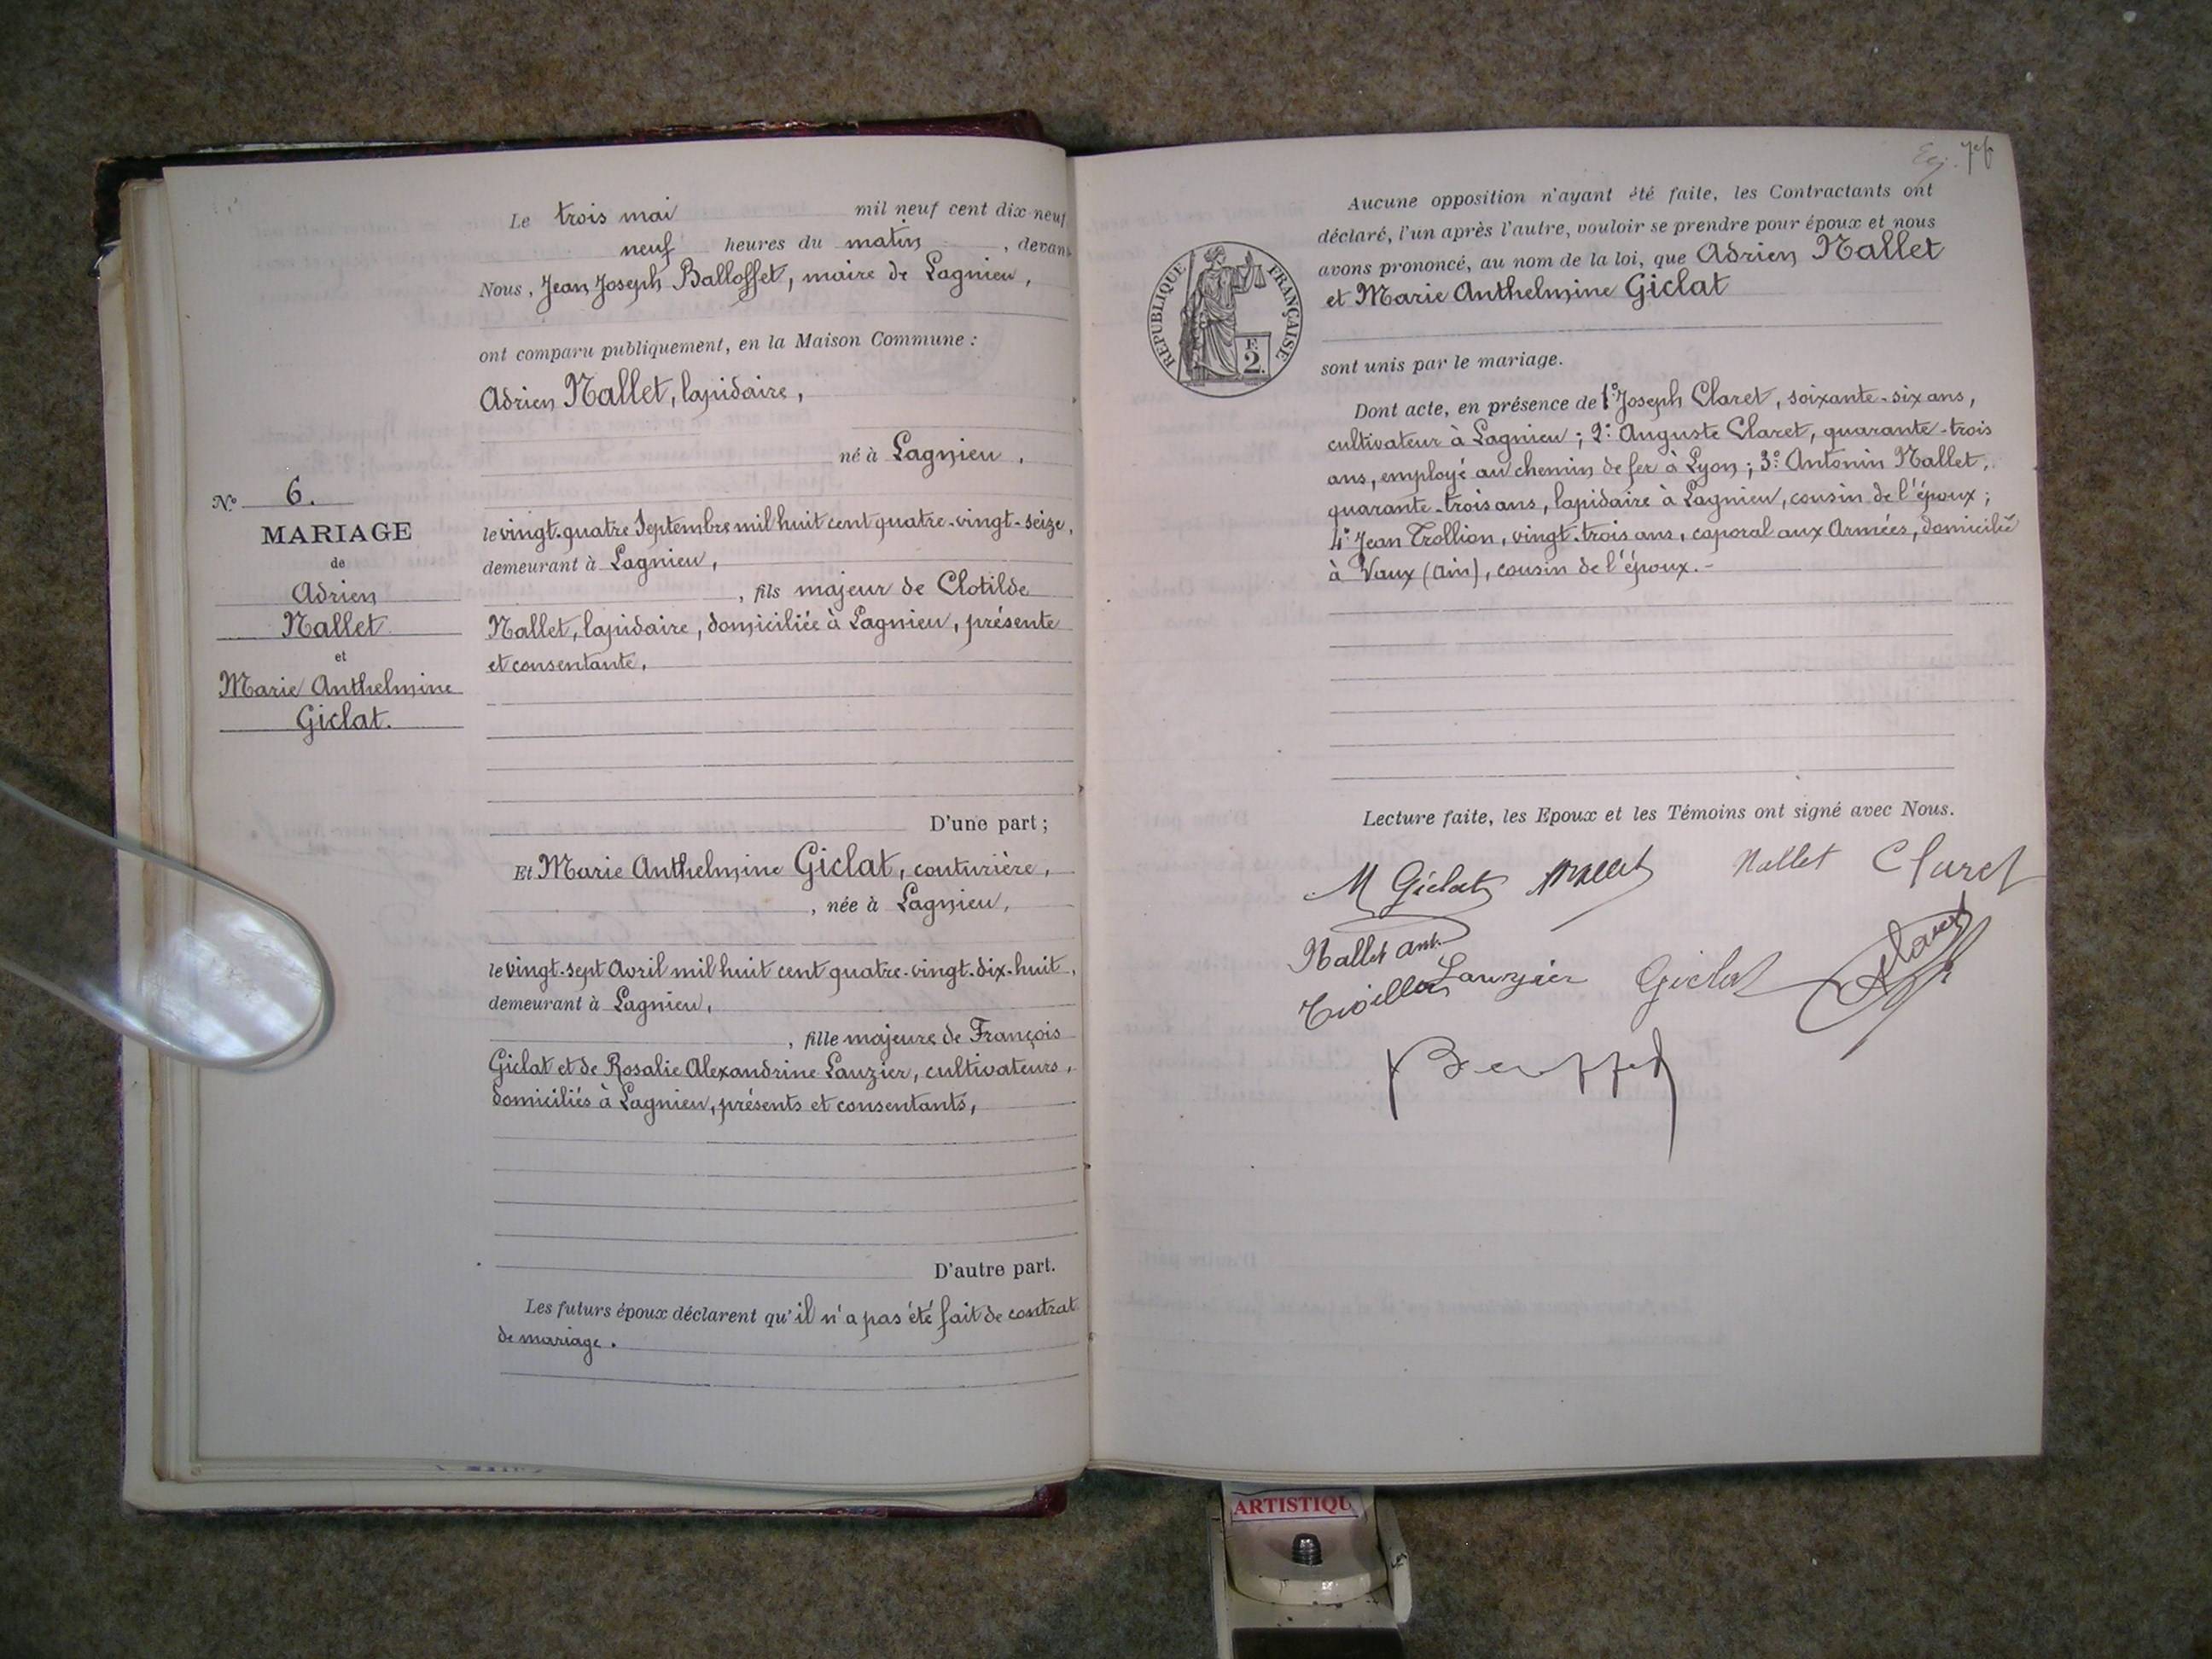 Le trois mai mil neuf cent dix-neuf
neuf heures du matin, devant
Nous, Jean Joseph Balloffet, maire de Lagnieu,
ont comparu publiquement, en la Maison Commune :
Adrien Nallet, lapidaire,
né à Lagnieu,
le vingt-quatre Septembre mil huit cent quatre-vingt-seize,
demeurant à Lagnieu,
, fils majeur de Clotilde
Nallet, lapidaire, domiciliée à Lagnieu, présente
et consentante,
D'une part ;
Et Marie Anthelmine Giclat, couturière,
, née à Lagnieu,
le vingt-sept Avril mil huit cent quatre-vingt-dix-huit,
demeurant à Lagnieu,
, fille majeure de François
Giclat et de Rosalie Alexandrine Lauzier, cultivateurs,
domiciliés à Lagnieu, présents et consentants,
D'autre part.
Les futurs époux déclarent qu'il n'a pas été fait de contrat
de mariage.
N° 6.
MARIAGE
de
Adrien
Nallet
et
Marie Anthelmine
Giclat.
Aucune opposition n'ayant été faite, les Contractants ont
déclaré, l'un après l'autre, vouloir se prendre pour époux et nous
avons prononcé, au nom de la loi, que Adrien Nallet
et Marie Anthelmine Giclat
sont unis par le mariage.
RÉPUBLIQUE FRANÇAISE
F.
2.
Dont acte, en présence de 1° Joseph Claret, soixante-six ans,
cultivateur à Lagnieu ; 2° Auguste Claret, quarante-trois
ans, employé au chemin de fer à Lyon ; 3° Antonin Nallet,
quarante-trois ans, lapidaire à Lagnieu, cousin de l'époux ;
4° Jean Trollion, vingt-trois ans, caporal aux Armées, domicilié
à Vaux (Ain), cousin de l'époux.-
Lecture faite, les Epoux et les Témoins ont signé avec Nous.
M Giclat Nallet Nallet Claret
Nallet ant.
Lauzier Giclat Claret
ARTISTIQU